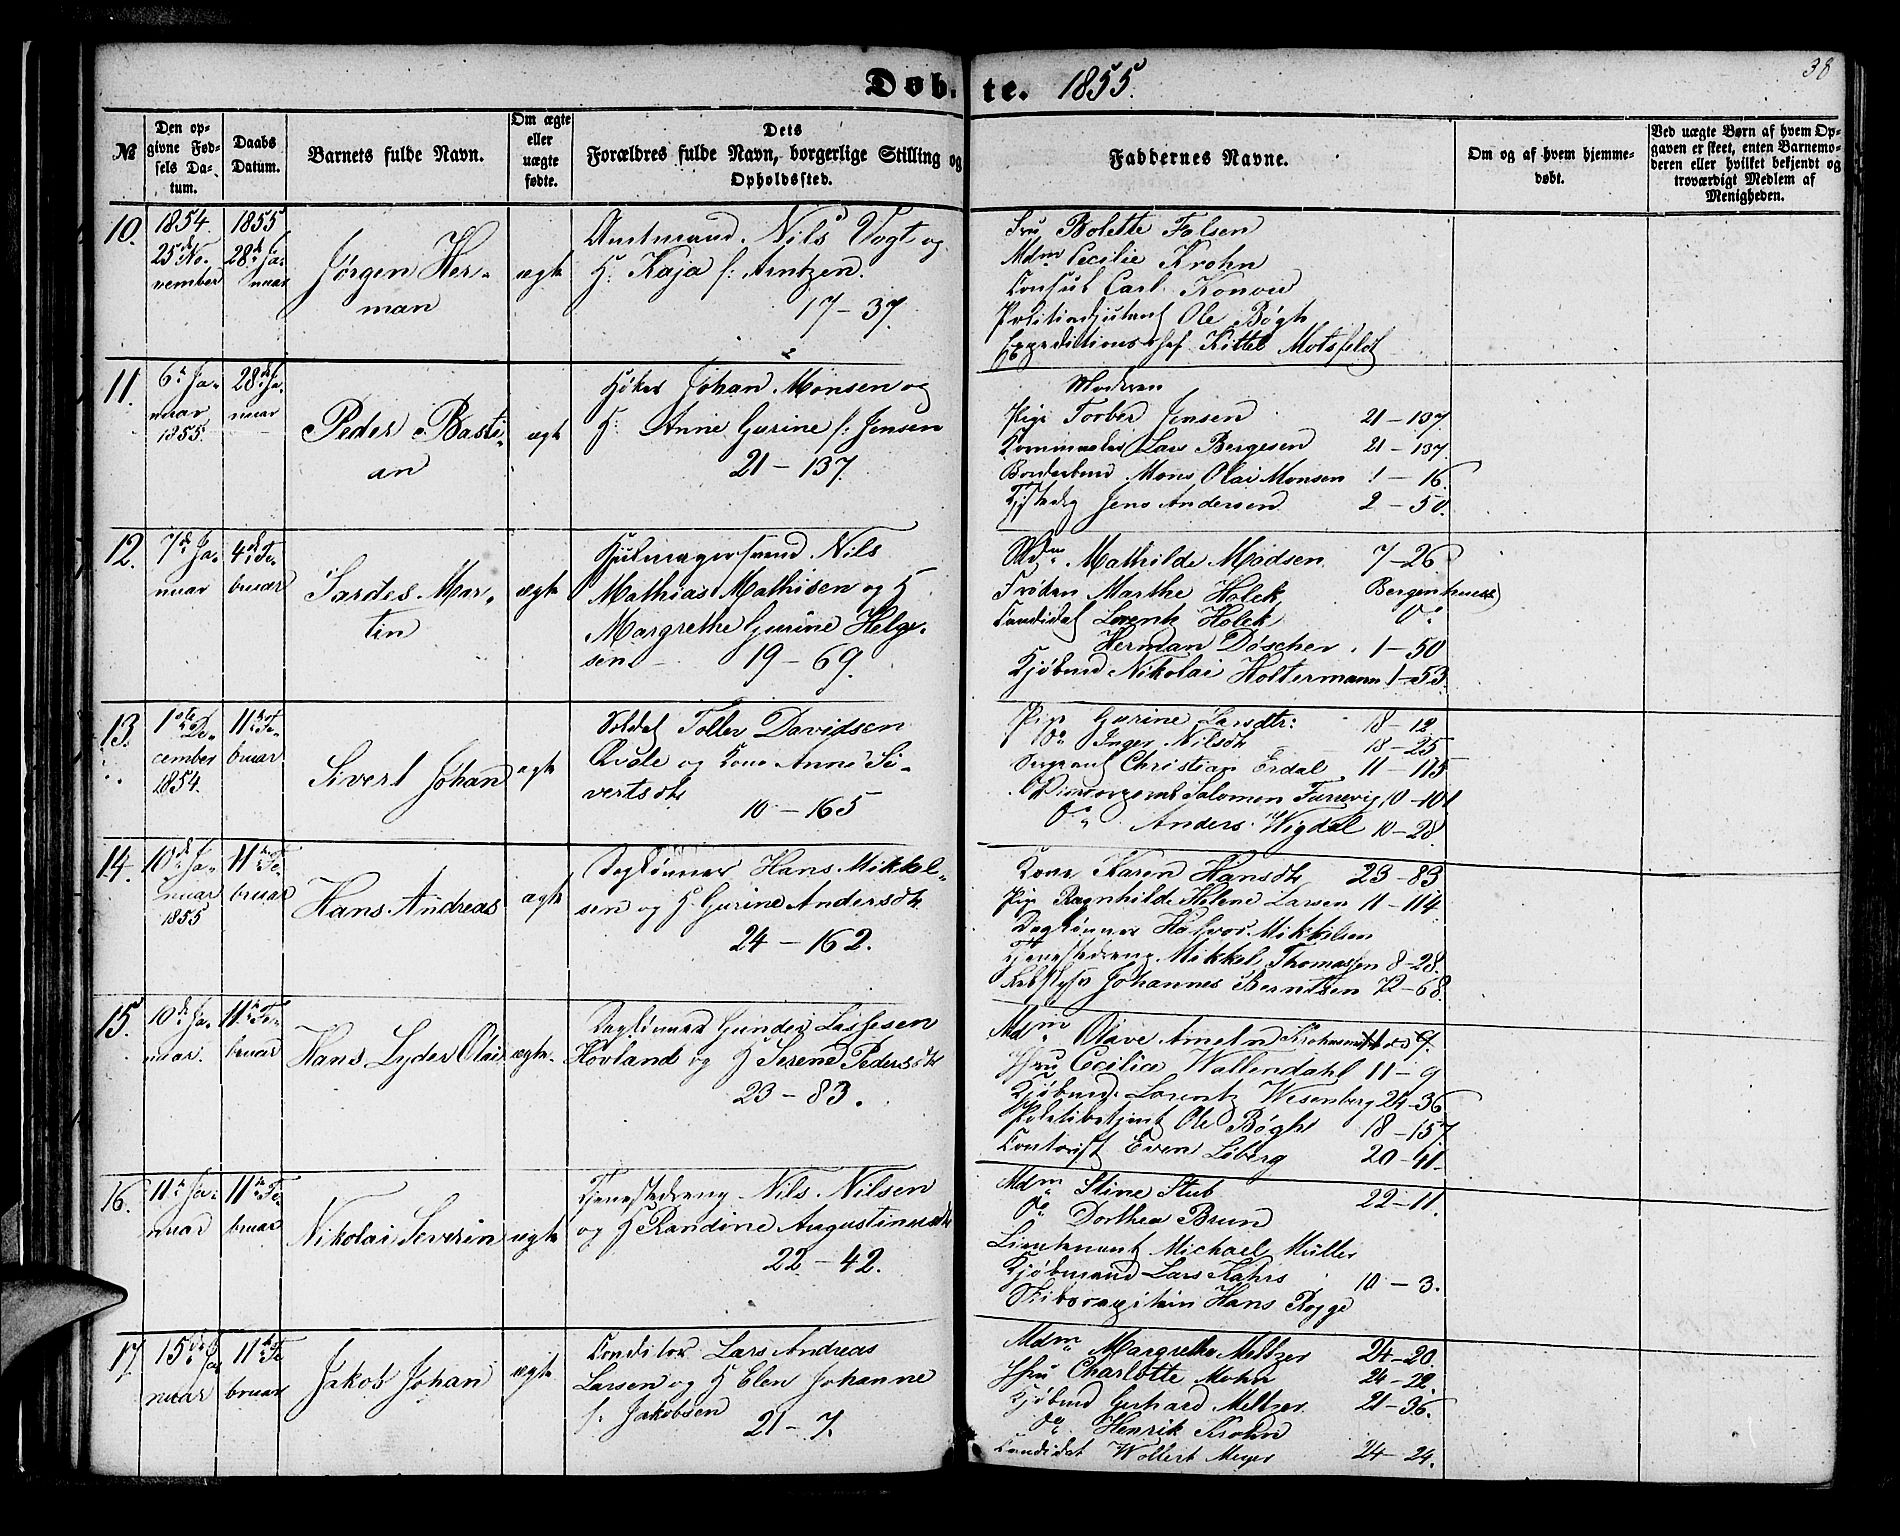 38
Døb-te. 1855.
№
Den op-
givne Fød-
sels Da-
tum.
Daabs
Datum.
Barnets fulde Navn.
Om ægte
eller
uægte
fødte.
Dets
Forældres fulde Navn, borgerlige Stilling og
Opholdssted.
Faddernes Navne.
Om og af hvem hjemme-
døbt.
Ved uægte Børn af hvem Op-
gaven er skeet, enten Barnemo-
deren eller hvilket bekjendt og
troværdigt Medlem af
Menigheden.
10.
1854
25de No-
vember
1855
28de Ja-
nuar
Jørgen Her-
man
ægte
Amtmand Nils Vogt og
H: Kaja f: Arntzen.
17-37.
Fru Bolette Falsen
Mdm Cecilie Krohn
Consul Carl Konow
Politiadjutant Ole Bøgh
Expeditionschef Kittel Motzfeldt
11.
6te Ja-
nuar
1855.
28de Ja-
nuar
Peder Basti-
an
ægte
Høker Johan Monsen og
H: Anne Gurine f: Jensen
21-137.
Moderen
Pige Torber Jensen 21-137
Lars Bergesen 21-137.
Mons Olai Monsen 1-16.
Jens Andersen 2-50.
12.
7de Ja-
nuar
4de Fe-
bruar
Sardes Mar-
tin
ægte
Hjulmagersvend Nils
Mathias Mathisen og H
Margrethe Gurine Helge-
sen 19-69.
Mdm. Mathilde Madsen 7-26
Frøken Marthe Holck Bergenhuus
Candidat Lorentz Holck Do
Herman Döscher 1-50
Kjøbmd Nikolai Holtermann 1-53.
13.
1ste De-
cember
1854.
11te Fe-
bruar
Sivert Johan
ægte
Soldat Toller Davidsen
Qvale og Kone Anne Si-
vertsdtr
10-165
Pige Gurine Larsdtr: 18-12
Do Inger Nilsdtr 18-25
Sergeant Christian Erdal 11-115
Salomon Furevig 10-101
Do Anders Wigdal 10-28
14.
10de Ja-
nuar
1855
11te Fe-
bruar
Hans Andreas
ægte
Daglønner Hans Mikkel-
sen og H. Gurine Andersdtr
24-162.
Kone Karen Hansdtr 23-83
Pige Ragnhilde Helene Larsen 11-114.
Daglønner Halvor Mikkelsen
Tjenestedreng Mikkel Thomassen 8-28.
Johannes Berntsen 12-68.
15.
10de Ja-
nuar.
11te Fe-
bruar
Hans Lyder Olai
ægte
Daglønner Gunder Lassesen
Hovland og H Serene Pedersdtr
23-83.
Mdm Olave Ameln 9.
Jfru Cecilie Wallendahl 11-9
Kjøbmd. Lorentz Wesenberg 24-36
Politibetjent Ole Bøgh 18-157
Contorist Even Løberg 20-41.
16.
11te Ja-
nuar
11te Fe-
bruar
Nikolai Severin
ægte
Tjenestedreng Nils Nilsen
og H Randine Augustinusdtr
22-42.
Mdm Stine Stub 22-11.
Do Dorthea Brun
Lieutenant Michael Müller
Kjøbmand Lars Kahrs 10-3.
Skibscapitain Hans Rogge
17
15de Ja-
nuar
11te Fe-
bruar
Jakob Johan
ægte
Conditor Lars Andreas
Larsen og H Elen Johanne
f: Jakobsen
21-7.
Mdm Margrethe Meltzer 24-20.
Jfru Charlotte Mohn 24-22.
Kjøbmd Gerhard Meltzer 21-36.
Do Henrik Krohn
Candidat Wollert Meyer 24-24.